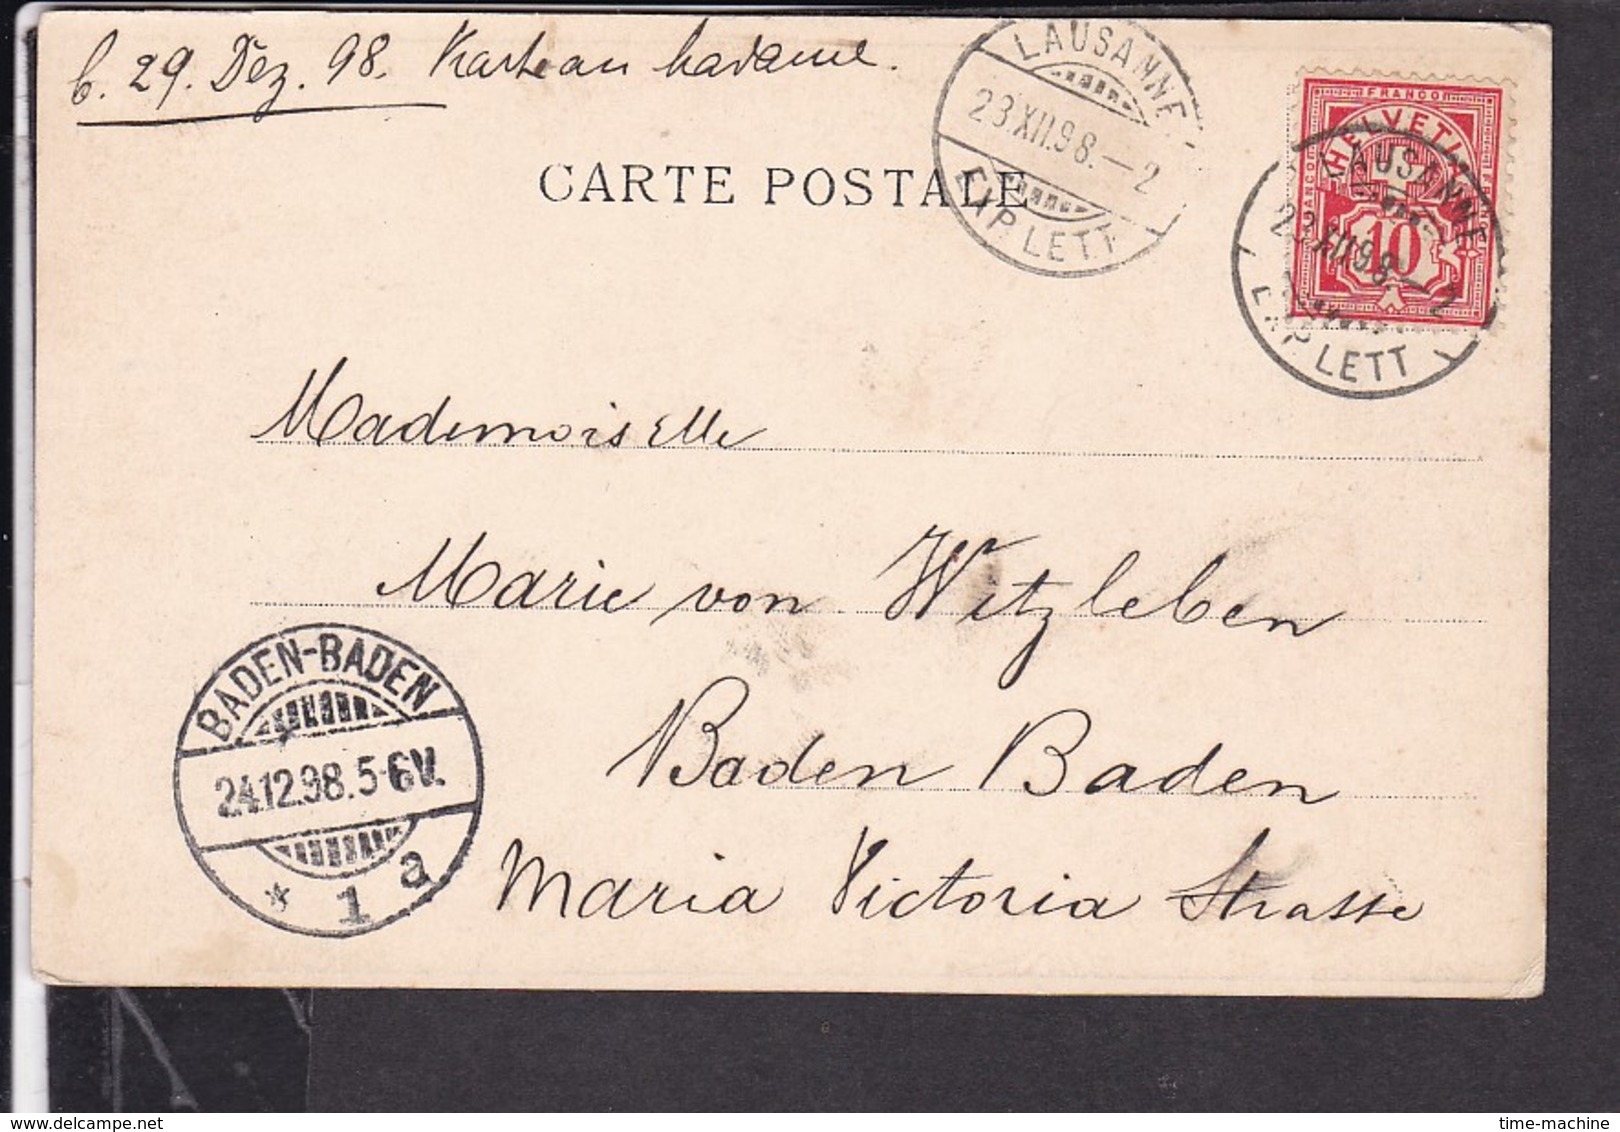 b. 29. Dez. 98. Karte an Madame.
CARTE POSTALE
LAUSANNE
23.XII.98.–2
EXP. LETT
FRANCO
HELVETIA
FRANCO
10
LAUSANNE
23.XII.98.–2
EXP. LETT
Mademoiselle
Marie von Witzleben
Baden Baden
Maria Victoria Strasse
BADEN-BADEN
24.12.98.5-6V.
* 1 a
time-machine